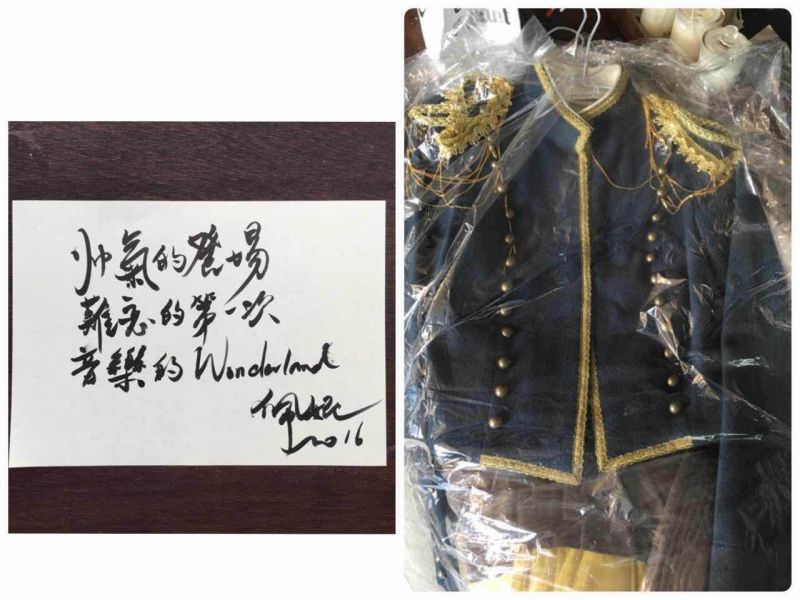 帅氣的登場
難忘的第一次
音樂的 Wonderland
佩妮
2016